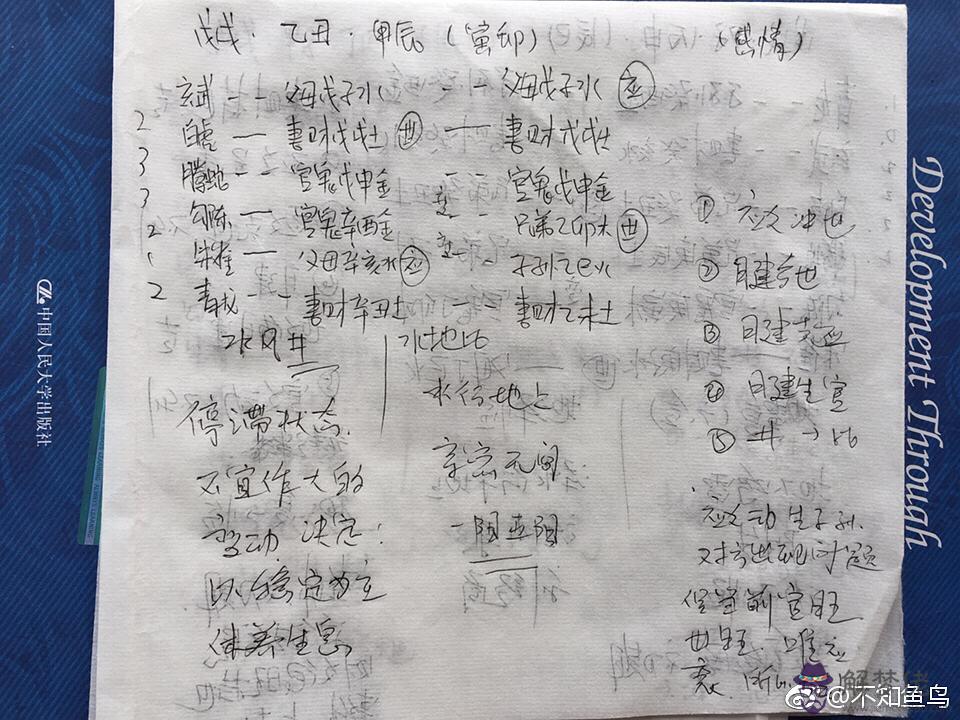 戊戌·乙丑·甲辰(寅卯)(感情)
玄武 -- 父母戊子水 -- 父母戊子水 应
2 白虎 — 妻财戊戌土 世 — 妻财戊戌土
3 腾蛇 -- 官鬼戊申金 -- 官鬼戊申金
3 勾陈 — 官鬼辛酉金 -- 兄弟乙卯木 世
2 朱雀 — 父母辛亥水 应 -- 子孙乙巳火
1
2 青龙 -- 妻财辛丑土 -- 妻财乙未土
水风井 水地比
停滞状态,
不宜作大的
变动 决定;
以稳定为主
休养生息
水行地上
亲密无间
一阳五阴
① 应爻冲世
② 日建 世
③ 日建 应
④ 日建生官
⑤ 井→比
应爻动生子孙,
对方出现问题
但当前官旺
世旺, 唯应
衰,
中国人民大学出版社
Development Through
@不知鱼鸟
解梦佬